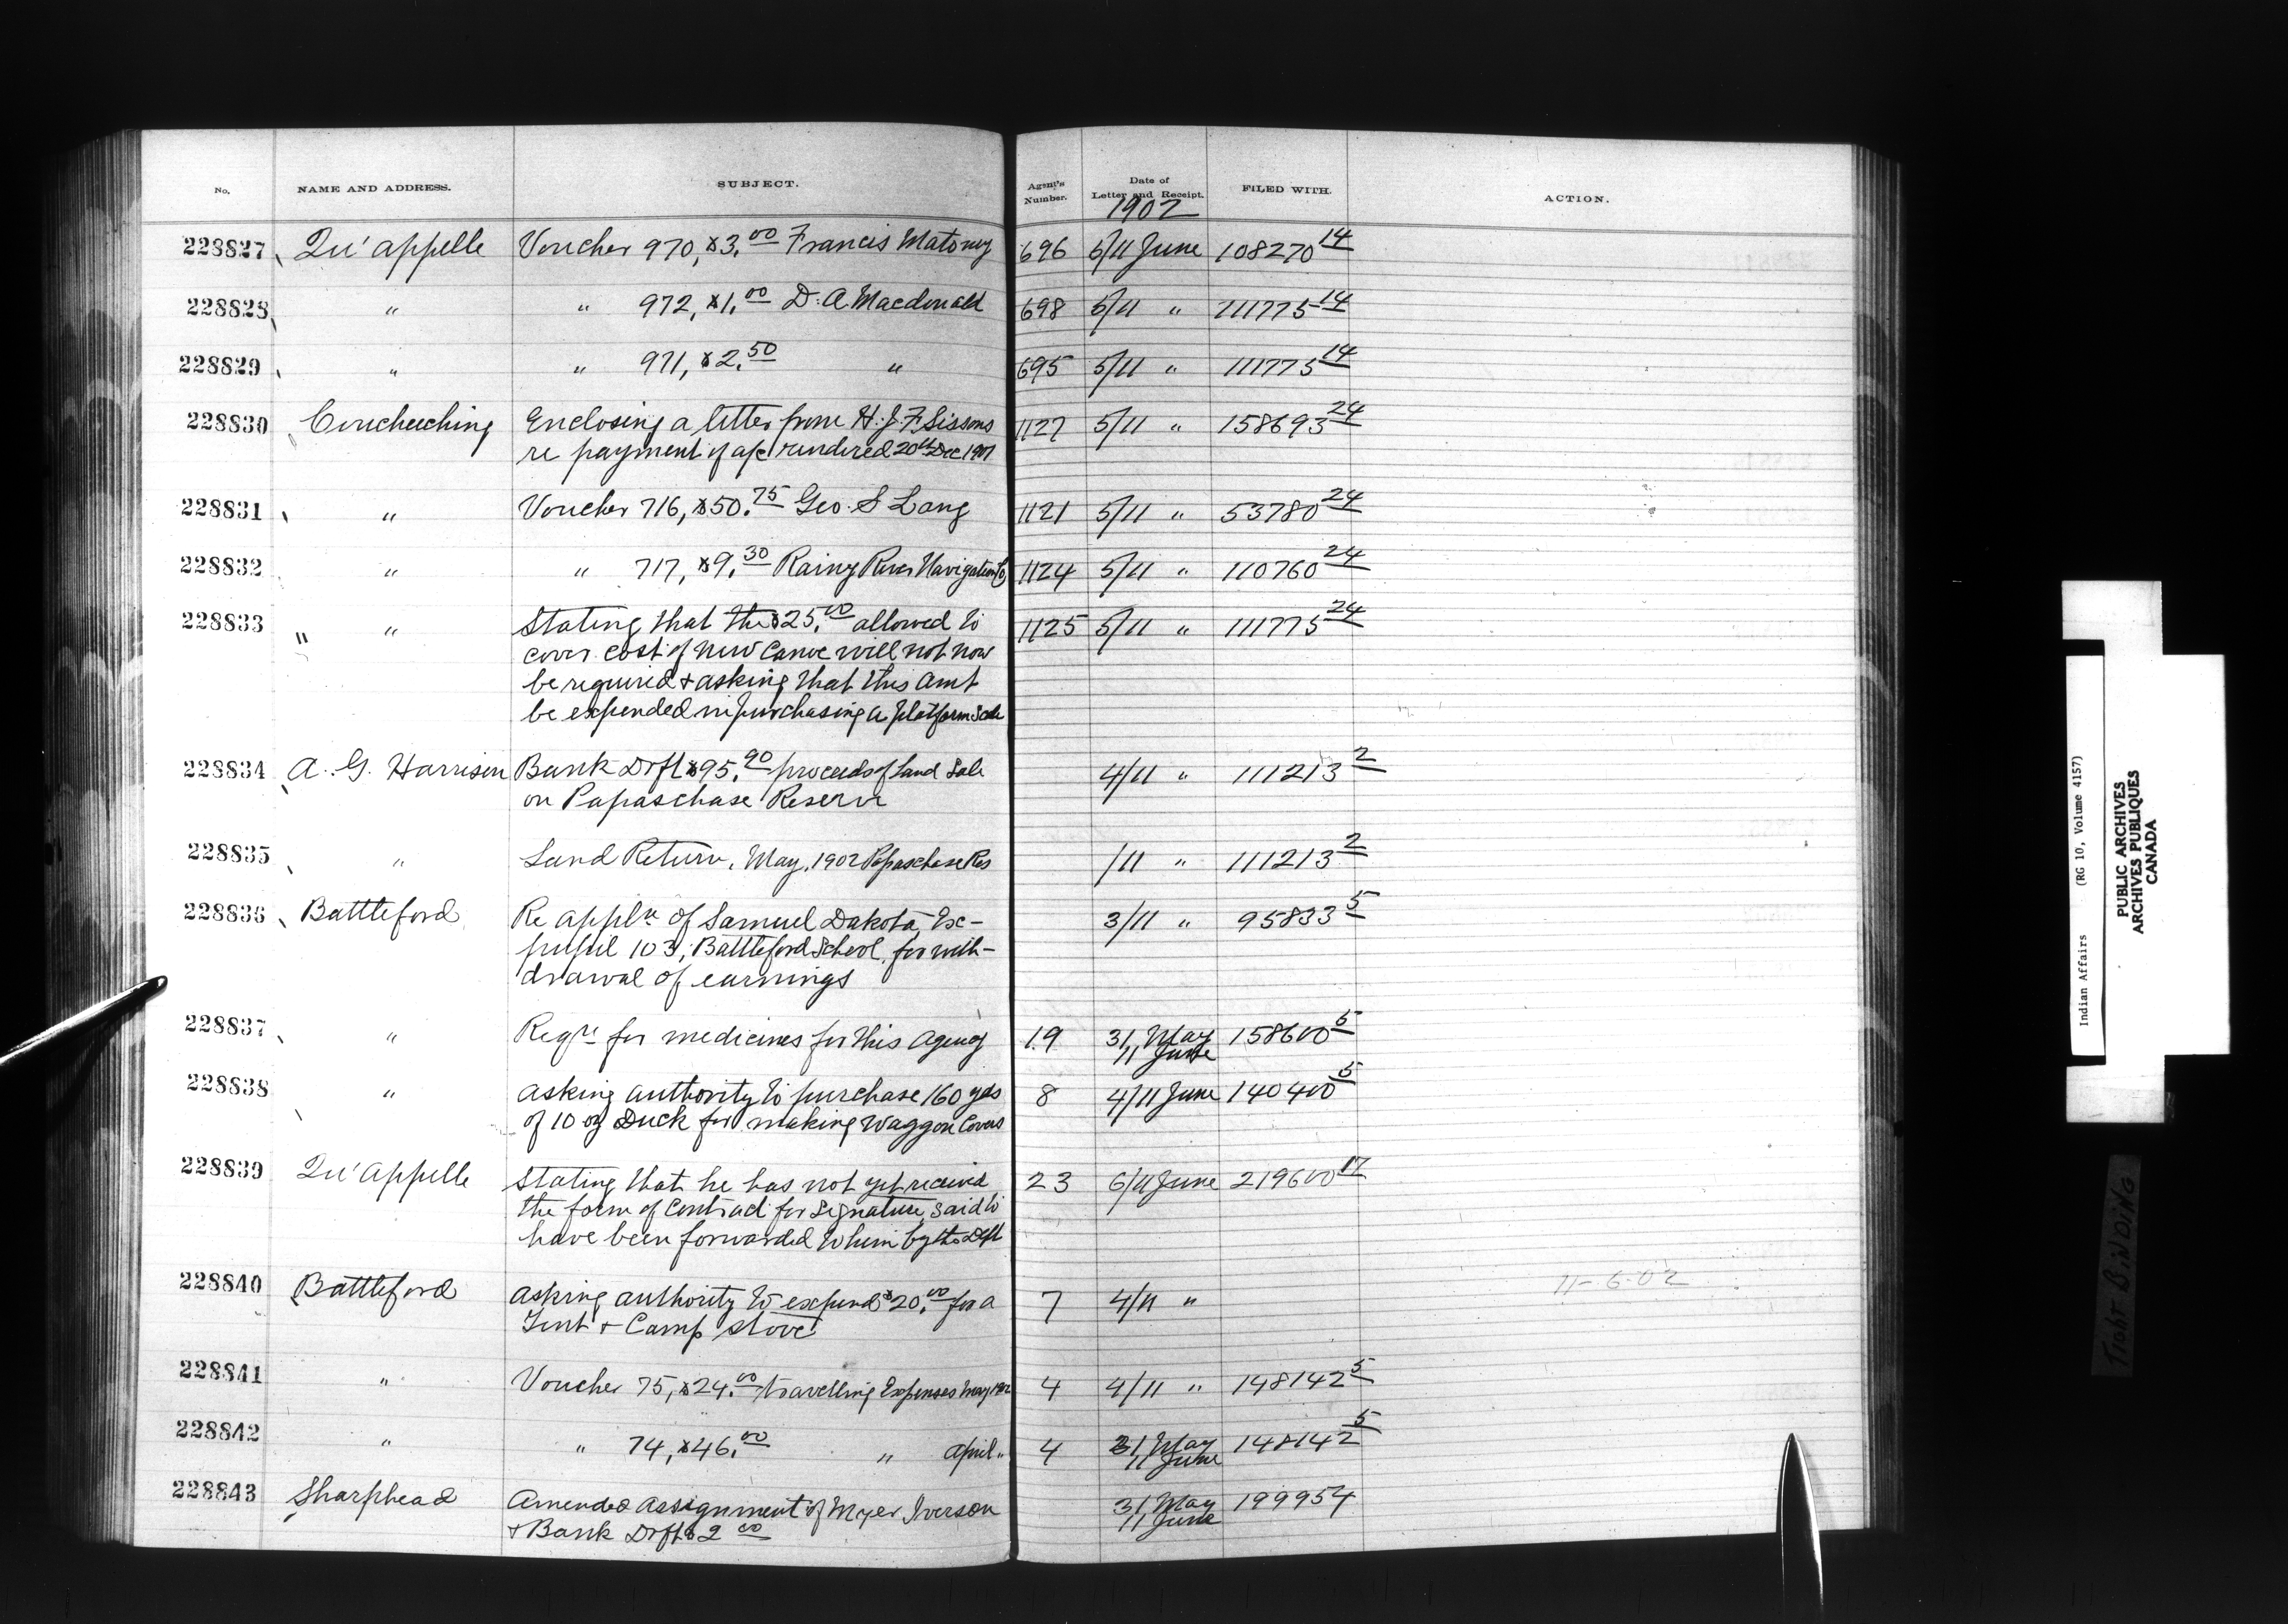 No. NAME AND ADDRESS. SUBJECT. Agent's Number. Date of Letter and Receipt. FILED WITH. ACTION.
1902
228827 Qu'appelle Voucher 970, $3.00 Francis Matoney 696 6/11 June 108270 14
228828 " " 972, $1.00 D. A. Macdonald 698 5/11 " 111775 14
228829 " " 971, $2.50 " 695 5/11 " 111775 14
228830 Coucheeching Enclosing a letter from H. J. F. Sissons 1127 5/11 " 158693 24
re payment of a/c rendered 20th Dec 1901
228831 " Voucher 716, $50.75 Geo. S Lang 1121 5/11 " 53780 24
228832 " " 717, $9.30 Rainy River Navigation Co 1124 5/11 " 110760 24
228833 " " Stating that the $25.00 allowed to 1125 5/11 " 111775 24
cover cost of new Canoe will not now
be required & asking that this amt
be expended in purchasing a platform Scale
228834 A. G. Harrison Bank Drft $95.90 proceeds of Land Sale 4/11 " 111213 2
on Papaschase Reserve
228835 " Land Return, May, 1902 Papaschase Res /11 " 111213 2
228836 Battleford Re appln of Samuel Dakota, Ex-
pupil 103, Battleford School, for with- 3/11 " 95833 5
drawal of earnings
228837 " Reqn for medicines for this Agency 19 31 May 158600 5
11 June
228838 " asking authority to purchase 160 yds 8 4/11 June 140400 5
of 10 oz Duck for making Waggon Covers
228839 Qu'appelle Stating that he has not yet received 23 6/11 June 219600 17
the form of Contract for Signature, said to
have been forwarded to him by the Dept
228840 Battleford asking authority to expend $20.00 for a 7 4/11 " 11-6-02
Tent & Camp stove
228841 " Voucher 75, $24.00 travelling Expenses May 1902 4 4/11 " 148142 5
228842 " " 74, $46.00 " april " 4 31 May 148142 5
11 June
228843 Sharphead Amended Assignment of Myer Iverson 31 May 199954
& Bank Drft $2 00 11 June
Indian Affairs (RG 10, Volume 4157)
PUBLIC ARCHIVES
ARCHIVES PUBLIQUES
CANADA
Tight BiNDiNG